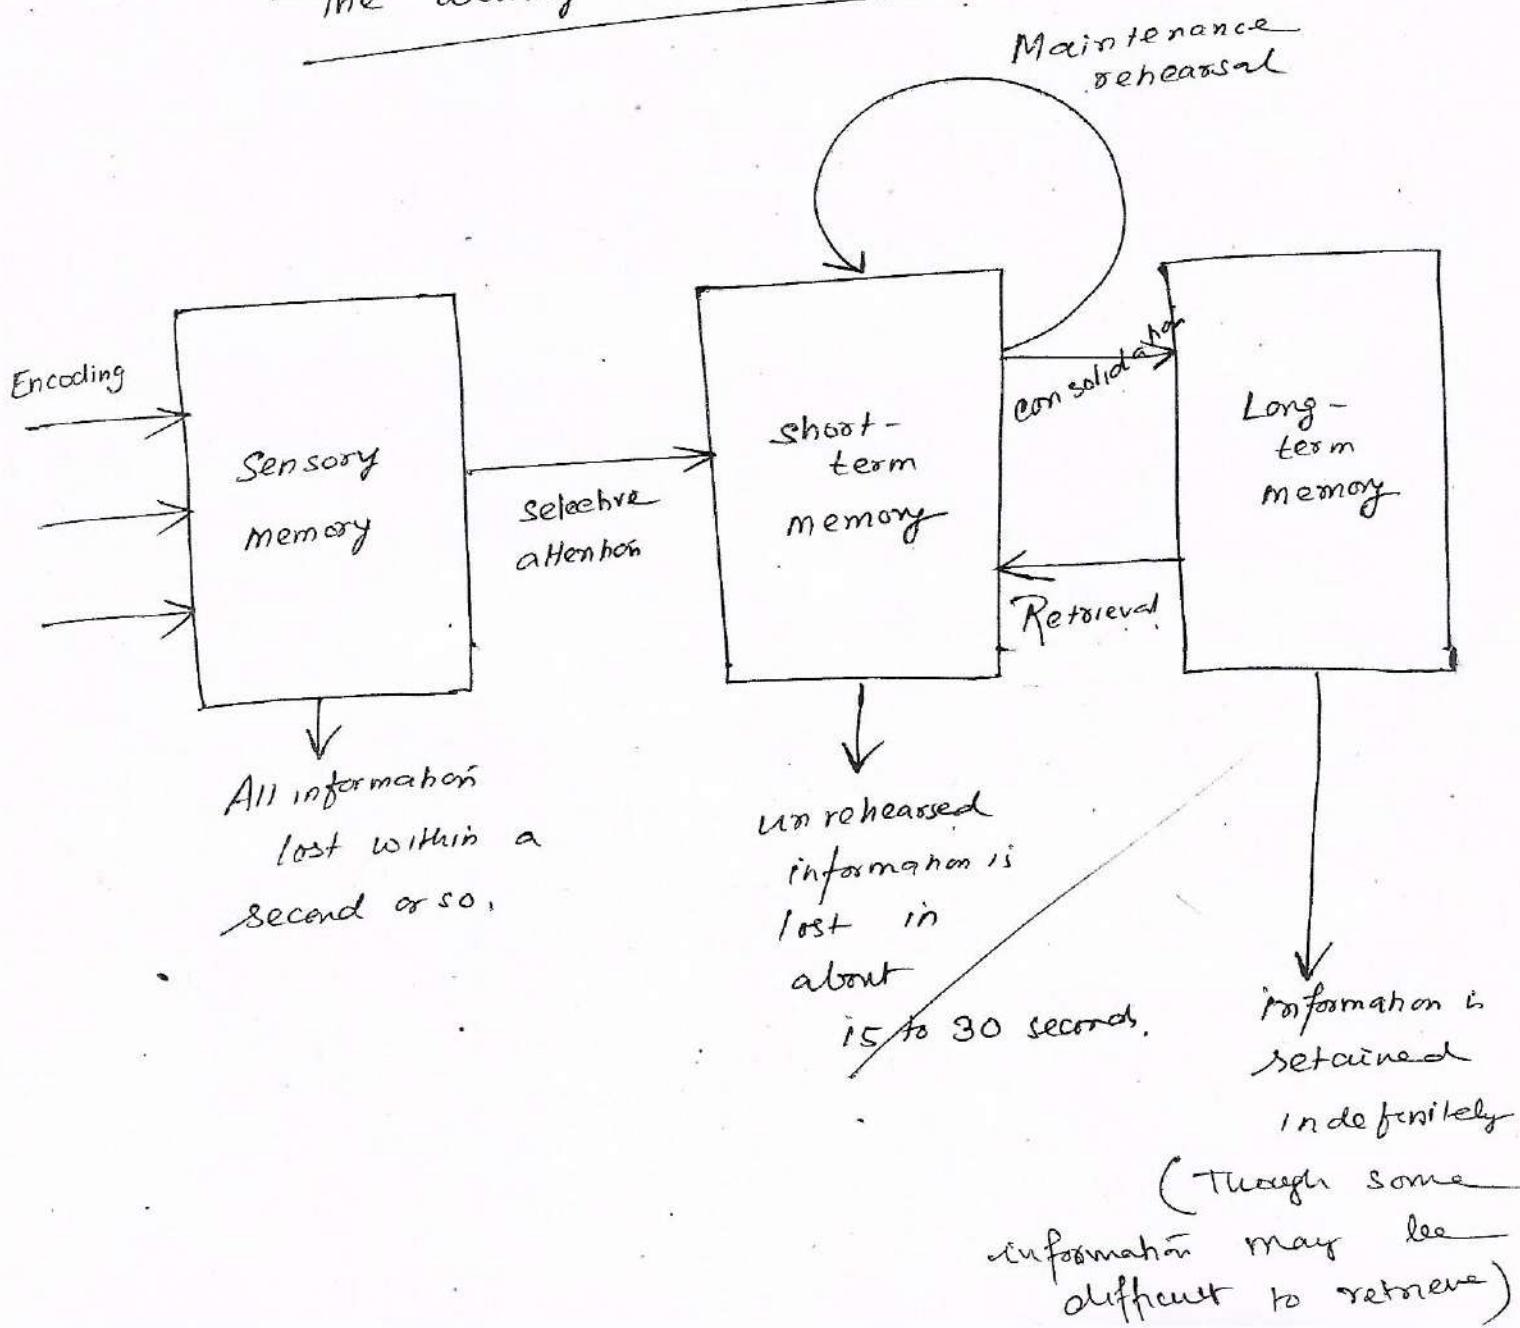 The
Maintenance
rehearsal
Encoding
Sensory
memory
selective
attention
short-
term
memory
consolidation
Retrieval
Long-
term
memory
All information
lost within a
second or so.
unrehearsed
information is
lost in
about
15 to 30 seconds.
information is
retained
indefinitely
(Though some
information may be
difficult to retrieve)